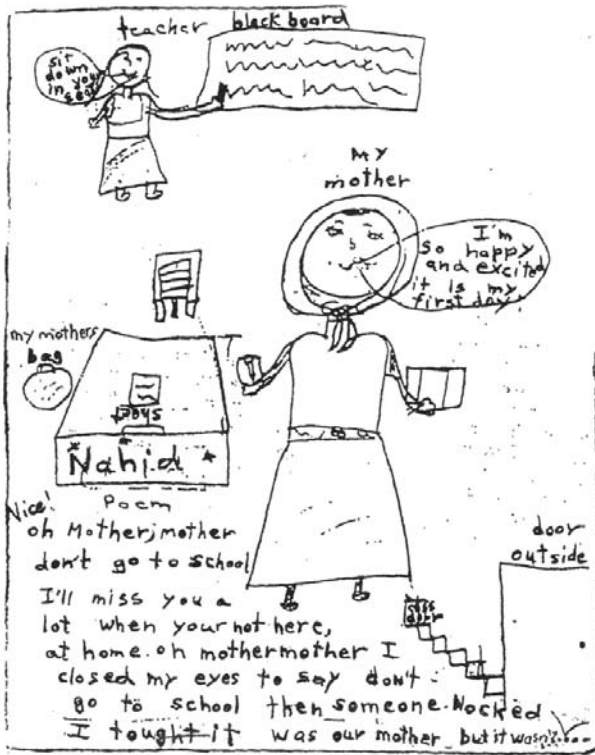 teacher
black board
sit
down
in your
seat
my
mother
I'm
so happy
and excited
it is my
first day!
my mothers
bag
Nahid
Poem
Nice!
oh Mother, mother
don't go to school
I'll miss you a
lot when your not here,
at home. oh mother mother I
closed my eyes to say don't
go to school then someone Nocked
I tought it was our mother but it wasn't.....
door
outside